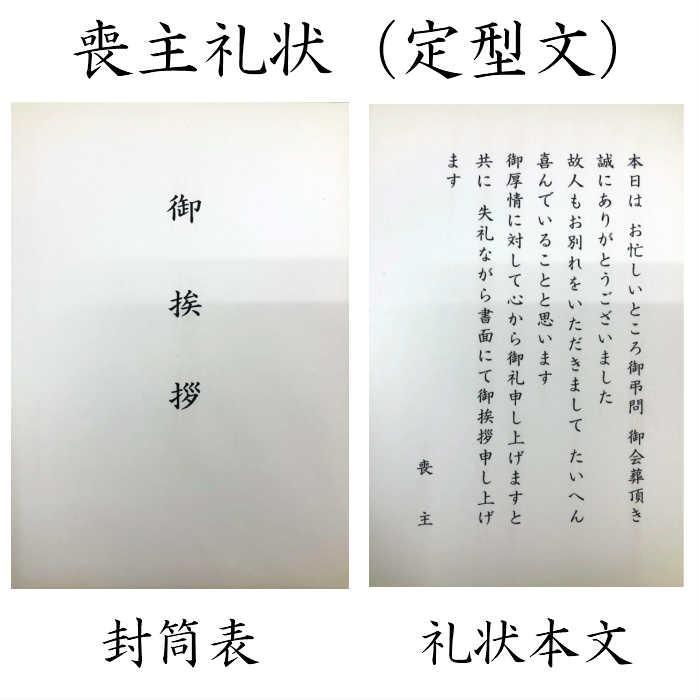 喪主礼状（定型文）
御挨拶
本日は お忙しいところ御弔問 御会葬頂き
誠にありがとうございました
故人もお別れをいただきまして たいへん
喜んでいることと思います
御厚情に対して心から御礼申し上げますと
共に 失礼ながら書面にて御挨拶申し上げ
ます
喪主
封筒表
礼状本文